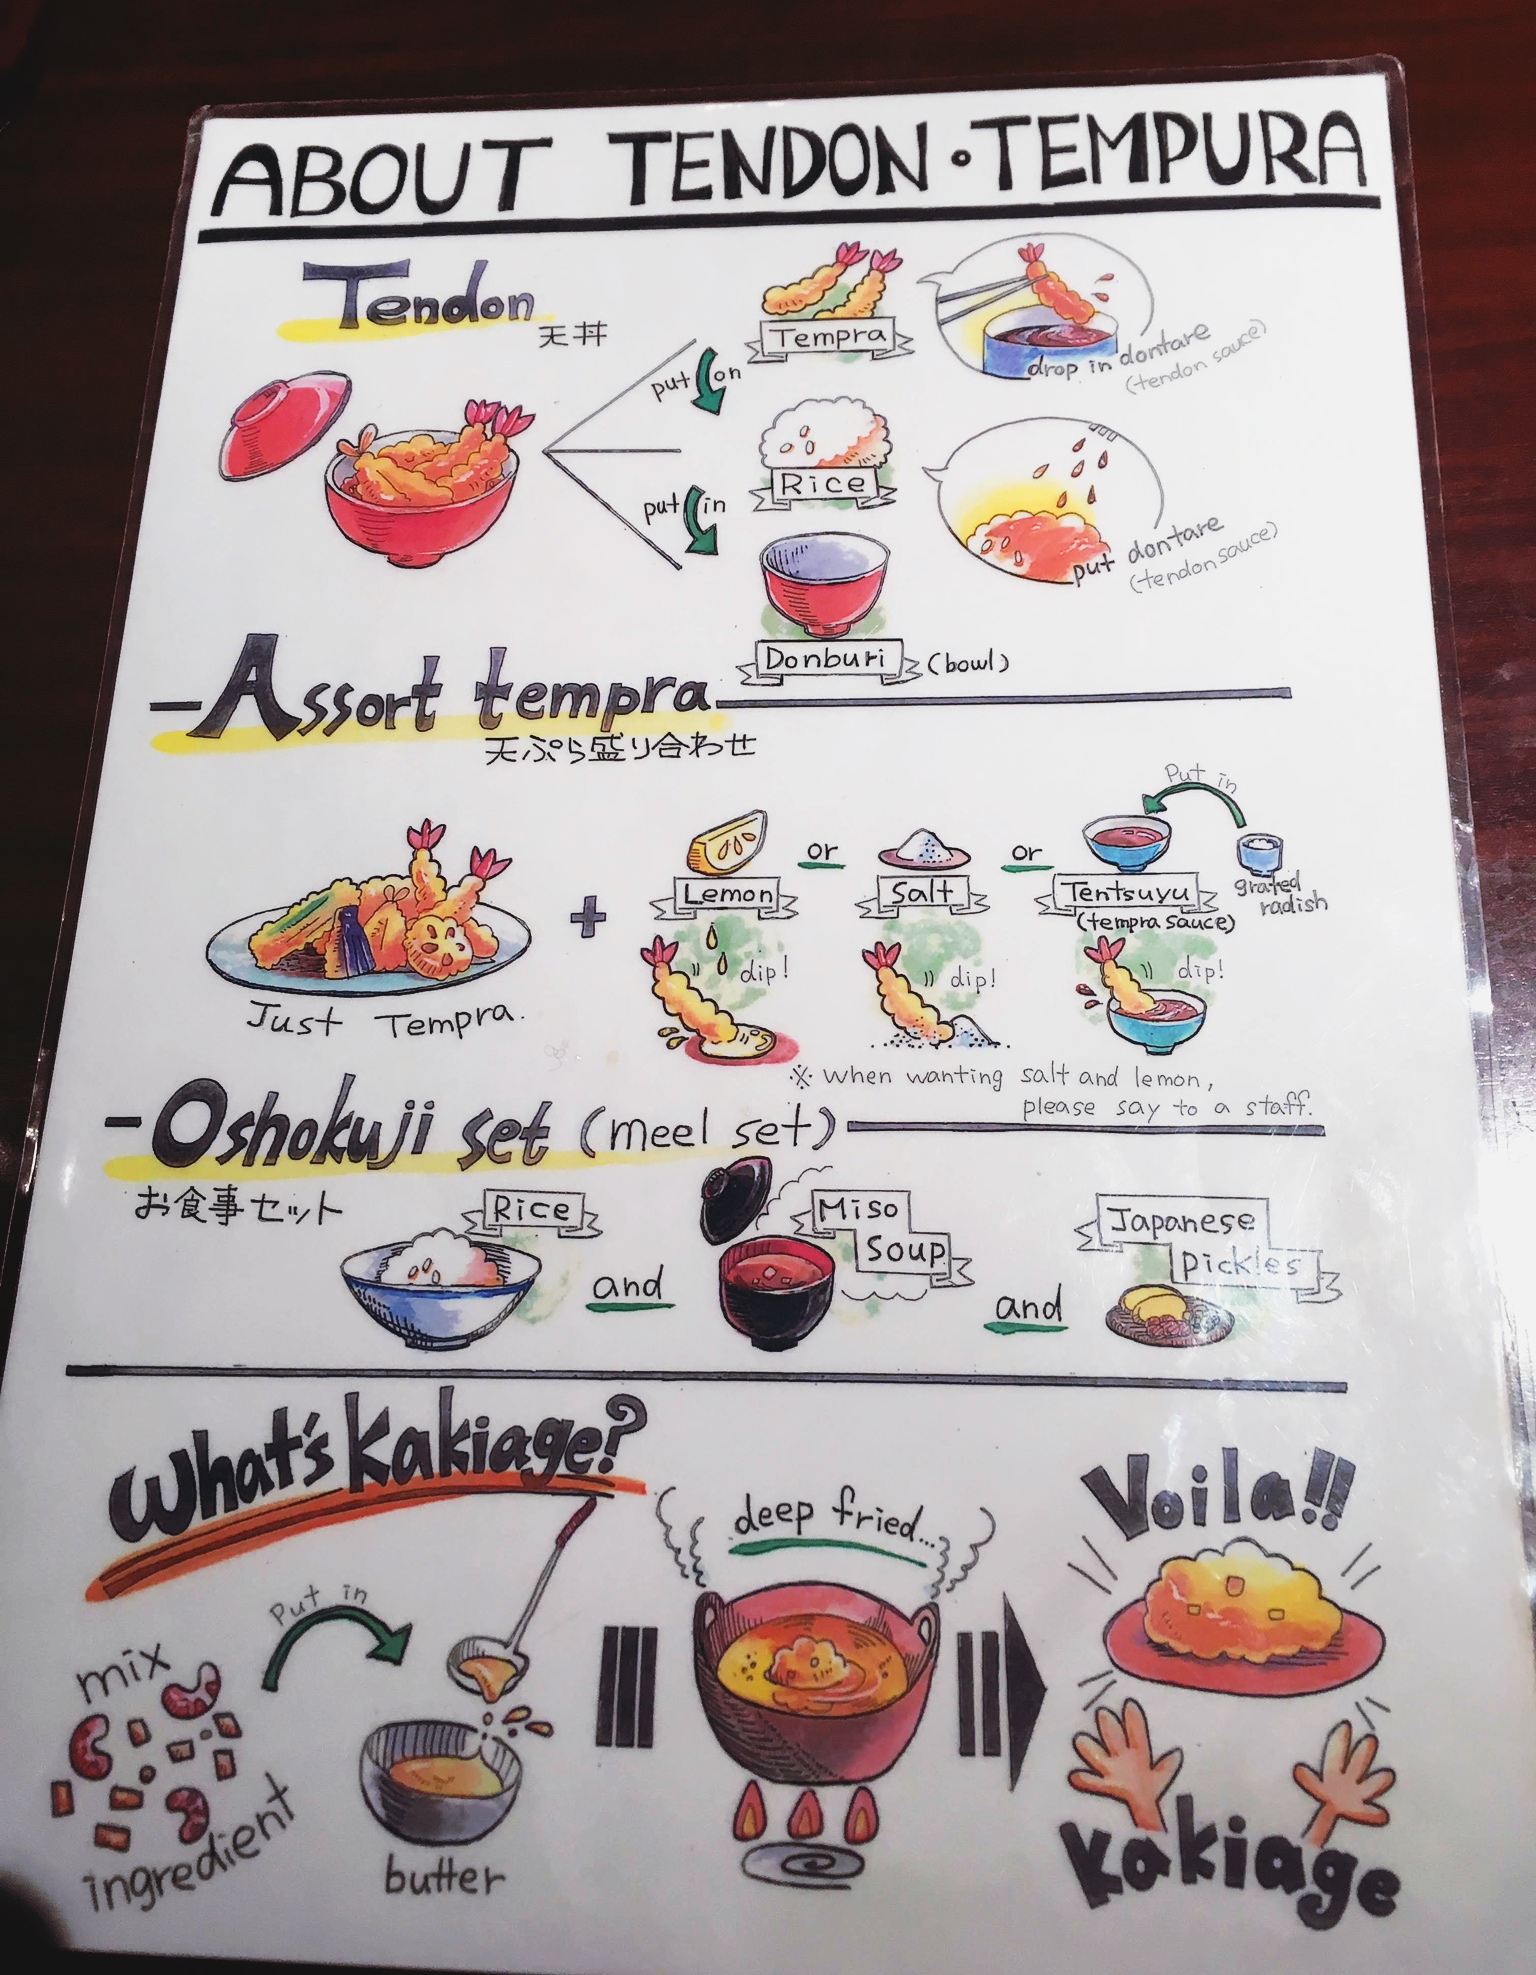 ABOUT TENDON・TEMPURA
Tendon
天丼
Tempra
put on
drop in dontare
(tendon sauce)
Rice
put in
put dontare
(tendon sauce)
Donburi (bowl)
Assort tempra
天ぷら盛り合わせ
Just Tempra.
+
Lemon
or
Salt
or
Tentsuyu
(tempra sauce)
Put in
grated
radish
dip!
dip!
dip!
※ when wanting salt and lemon,
please say to a staff.
Oshokuji set (meel set)
お食事セット
Rice
and
Miso
Soup
and
Japanese
Pickles
What's Kakiage?
mix
ingredient
Put in
butter
deep fried...
Voila!!
Kakiage